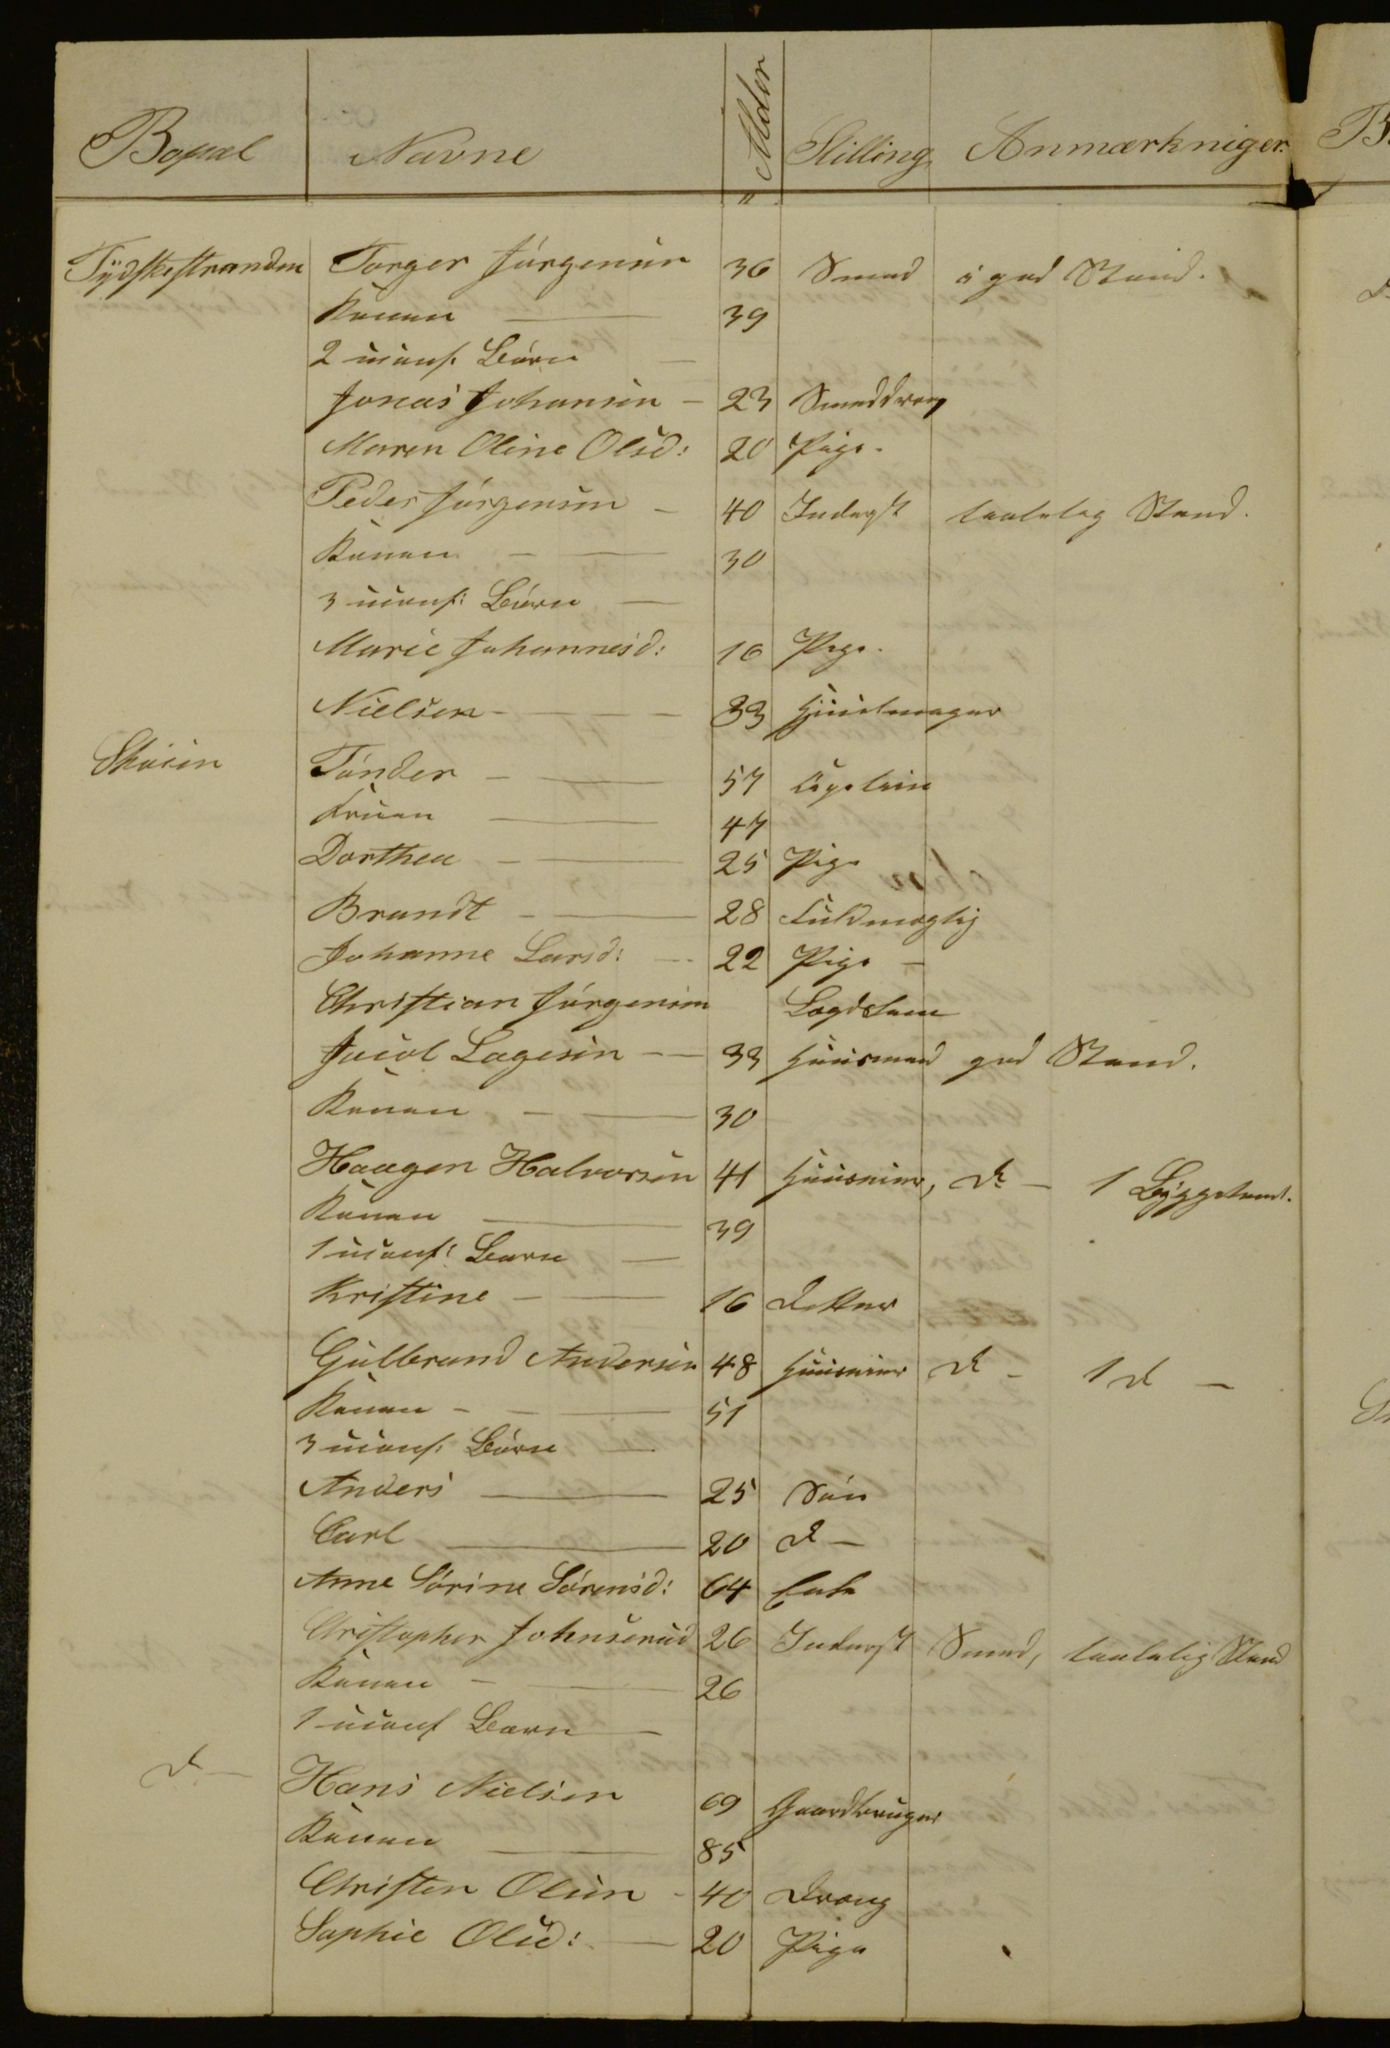 Bopæl Navne Alder Stilling Anmærkniger.
Tÿdskestranden Torger Jörgensen 36 Smed i god Stand.
Konen 39
2 uconf. Börn
Jonas Johansen 23 Smeddreng
Maren Oline Olsd: 20 Pige.
Peder Jörgensen 40 Inderst taalelig Stand.
Konen 30
3 uconf: Börn
Marie Johannesd: 16 Pige.
Nielsen 33 Hjuulmager
Tönder 57 Captain
Fruen 47
Dorthea 25 Pige
Brandt 28 Fuldmægtig
Johanne Larsd: 22 Pige
Christian Jörgensen Lægdslem
Jacob Lagesen 33 Huusmand god Stand.
Konen 30
Haagen Halvorsen 41 Huusmand, do 1 Byggetomt.
Konen 39
1 uconf: Barn
Kristine 16 Datter
Gulbrand Andersen 48 Huusmand do 1 do
Konen 51
3 uconf. Börn
Anders 25 Sön
Carl 20 do
Anne Sörine Sörensd: 64 Enke
Christopher Johnserud 26 Inderst Smed, taalelig Stand
Konen 26
1 uconf Barn
do Hans Nielsen 69 Gaardbruger
Konen 85
Christen Olsen 40 Dreng
Sophie Olsd: 20 Pige